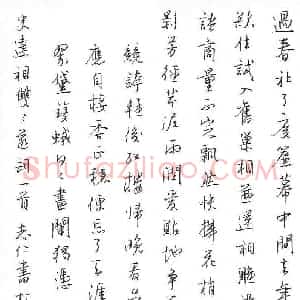 過春社了度簾幕中間去年
欲住試入舊巢相並還相雕
語商量不定飄然快拂花梢
影芳徑芹泥雨潤愛貼地爭
競誇輕俊紅樓歸晚看
應自棲香正穩便忘了天涯
翠黛雙蛾日日畫闌獨憑
史達祖雙雙燕詞一首 志仁書
Shufaziliao.com